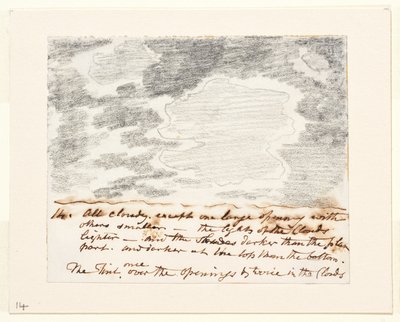 14. All cloudy, except one large opening with
others smaller — the lights of the Clouds
lighter — and the Shades darker than the plain
part. and darker at the top than the bottom.
The Tint once over the openings & twice in the Clouds
14